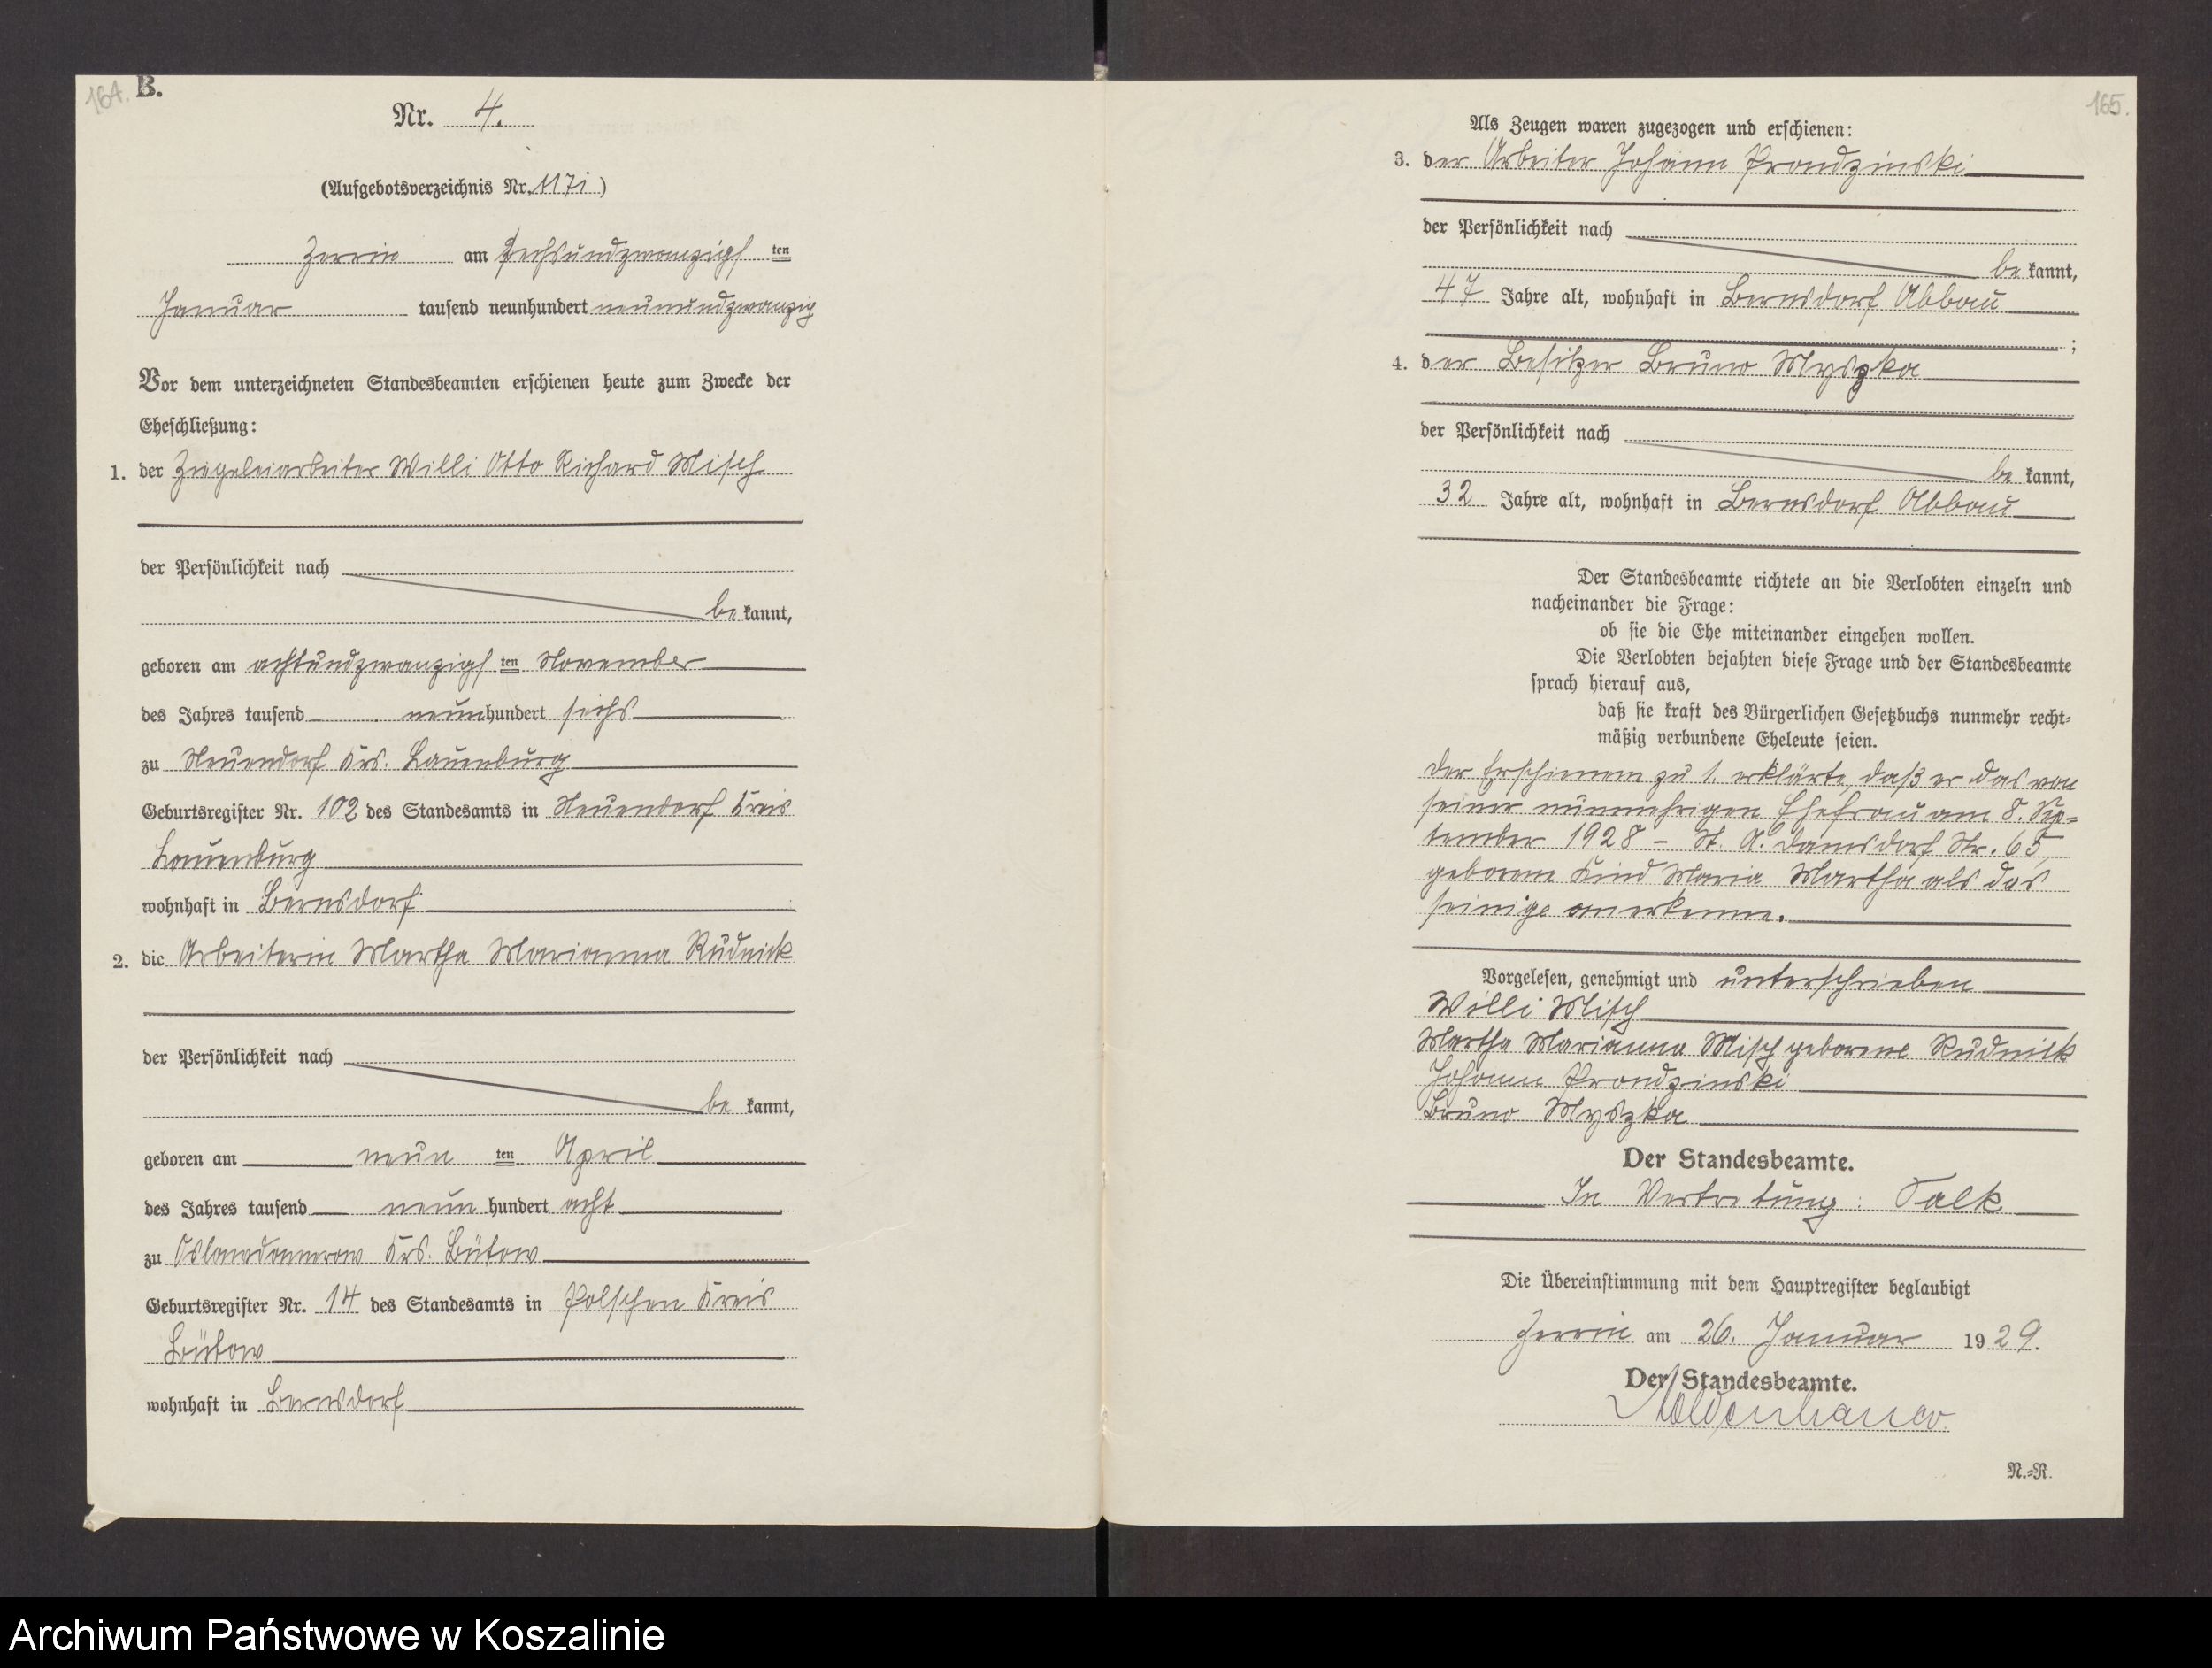 164. B.
Nr. 4.
(Aufgebotsverzeichnis Nr. 117i)
Zerrin am sechsundzwanzigsten
Januar tausend neunhundert neunundzwanzig
Vor dem unterzeichneten Standesbeamten erschienen heute zum Zwecke der
Eheschließung:
1. der Ziegeleiarbeiter Willi Otto Richard Misch
der Persönlichkeit nach
bekannt,
geboren am achtundzwanzigsten November
des Jahres tausend neunhundert sechs
zu Neuendorf Krs. Lauenburg
Geburtsregister Nr. 102 des Standesamts in Neuendorf Kreis
Lauenburg
wohnhaft in Bernsdorf
2. die Arbeiterin Martha Marianna Rudnick
der Persönlichkeit nach
bekannt,
geboren am neunten April
des Jahres tausend neunhundert acht
zu Oslawdamerow Krs. Bütow
Geburtsregister Nr. 14 des Standesamts in Polschen Kreis
Bütow
wohnhaft in Bernsdorf
165.
Als Zeugen waren zugezogen und erschienen:
3. der Arbeiter Johann Prondzinski
der Persönlichkeit nach
bekannt,
47 Jahre alt, wohnhaft in Bernsdorf Abbau
;
4. der Besitzer Bruno Myszka
der Persönlichkeit nach
bekannt,
32 Jahre alt, wohnhaft in Bernsdorf Abbau
Der Standesbeamte richtete an die Verlobten einzeln und
nacheinander die Frage:
ob sie die Ehe miteinander eingehen wollen.
Die Verlobten bejahten diese Frage und der Standesbeamte
sprach hierauf aus,
daß sie kraft des Bürgerlichen Gesetzbuchs nunmehr recht-
mäßig verbundene Eheleute seien.
Der Erschienene zu 1. erklärte, daß er das von
seiner nunmehrigen Ehefrau am 8. Sep-
tember 1928 – St. A. Damsdorf Nr. 65,
geborene Kind Maria Martha als das
seinige anerkenne.
Vorgelesen, genehmigt und unterschrieben
Willi Misch
Martha Marianna Misch geborene Rudnick
Johann Prondzinski
Bruno Myszka
Der Standesbeamte.
In Vertretung: Falk
Die Übereinstimmung mit dem Hauptregister beglaubigt
Zerrin am 26. Januar 1929.
Der Standesbeamte.
Moldenhauer
N.-R.
Archiwum Państwowe w Koszalinie